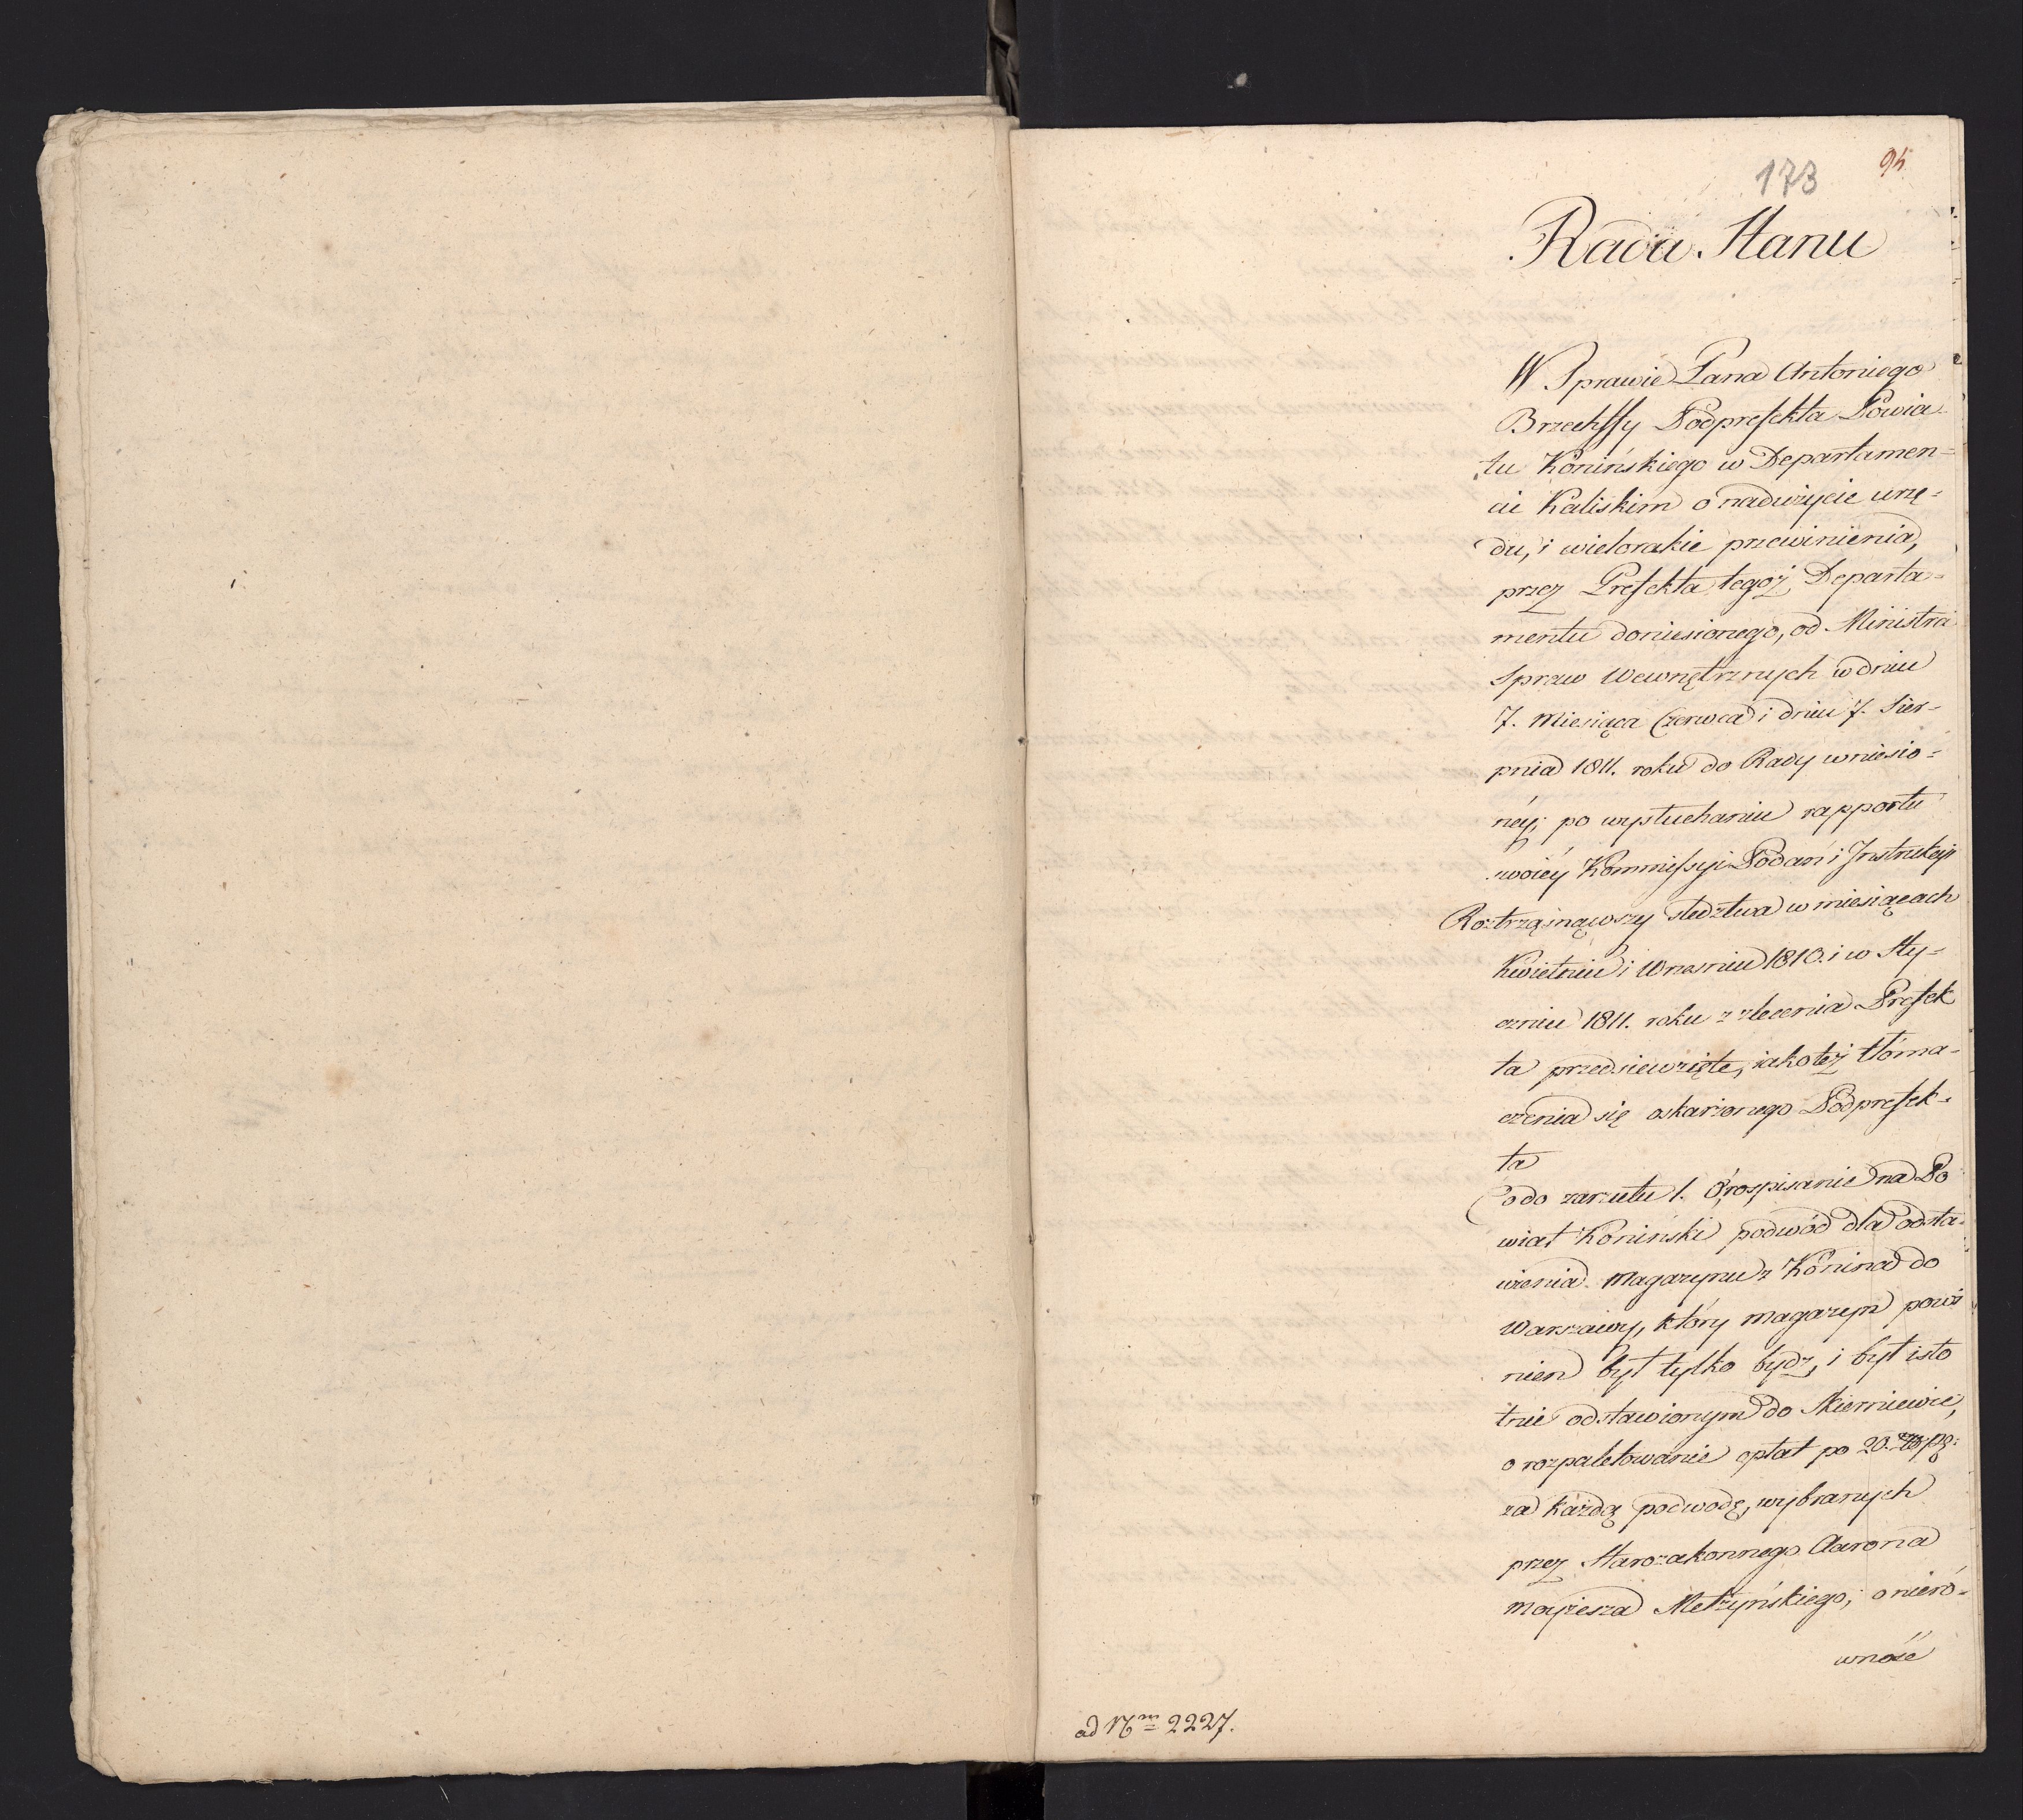 173
94
Rada Stanu
W Sprawie Pana Antoniego
Brzechffy Podprefekta Powia-
tu Konińskiego w Departamen=
cie Kaliskim o nadużycie urzę=
du, i wielorakie przewinienia,
przez Prefekta tegoż Departa=
mentu doniesionego, od Ministra
Spraw Wewnętrznych w dniu
7. Miesiąca Czerwca i dniu 7. Sier-
pnia 1811. roku do Rady wniesio=
néy; po wysłuchaniu rapportu
swoiéy Kommissyi Podań i Instrukcyi
Roztrząsnąwszy sledztwa w miesiącach
Kwietniu i Wrzesniu 1810. i w Sty=
czniu 1811. roku z zlecenia Prefek
ta przedsiewzięte, iakoteż tłóma-
czenia się oskarżonego Podprefek-
ta
Co do zarzutu 1. O rospisanie na Po
wiat Koninski podwód dla odsta-
wienia Magazynu z Konina do
Warszawy, który magazyn powi
nien był tylko bydz, i był isto
tnie odstawionym do Skierniewic,
o rozpaletowanie opłat po 20.
za każdą podwodę, wybranych
przez Starozakonnego Aarona
Mayiesza Metzyńskiego; o nieró-
wność
ad Nm 2227.